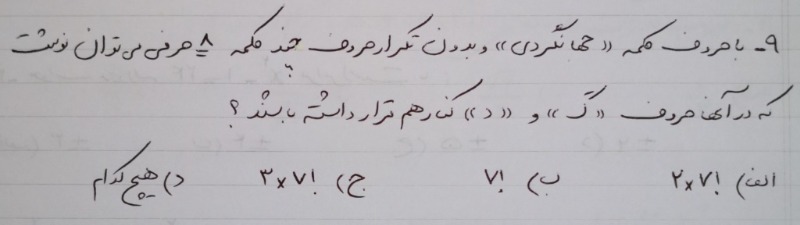 ۹- با حروف کلمه «جهانگردی» و بدون تکرار حروف چند کلمه ۸ حرفی می‌توان نوشت
که در آنها حروف «گ» و «د» کنار هم قرار داشته باشند؟
الف) ۲×۷! ب) ۷! ج) ۳×۷! د) هیچ کدام